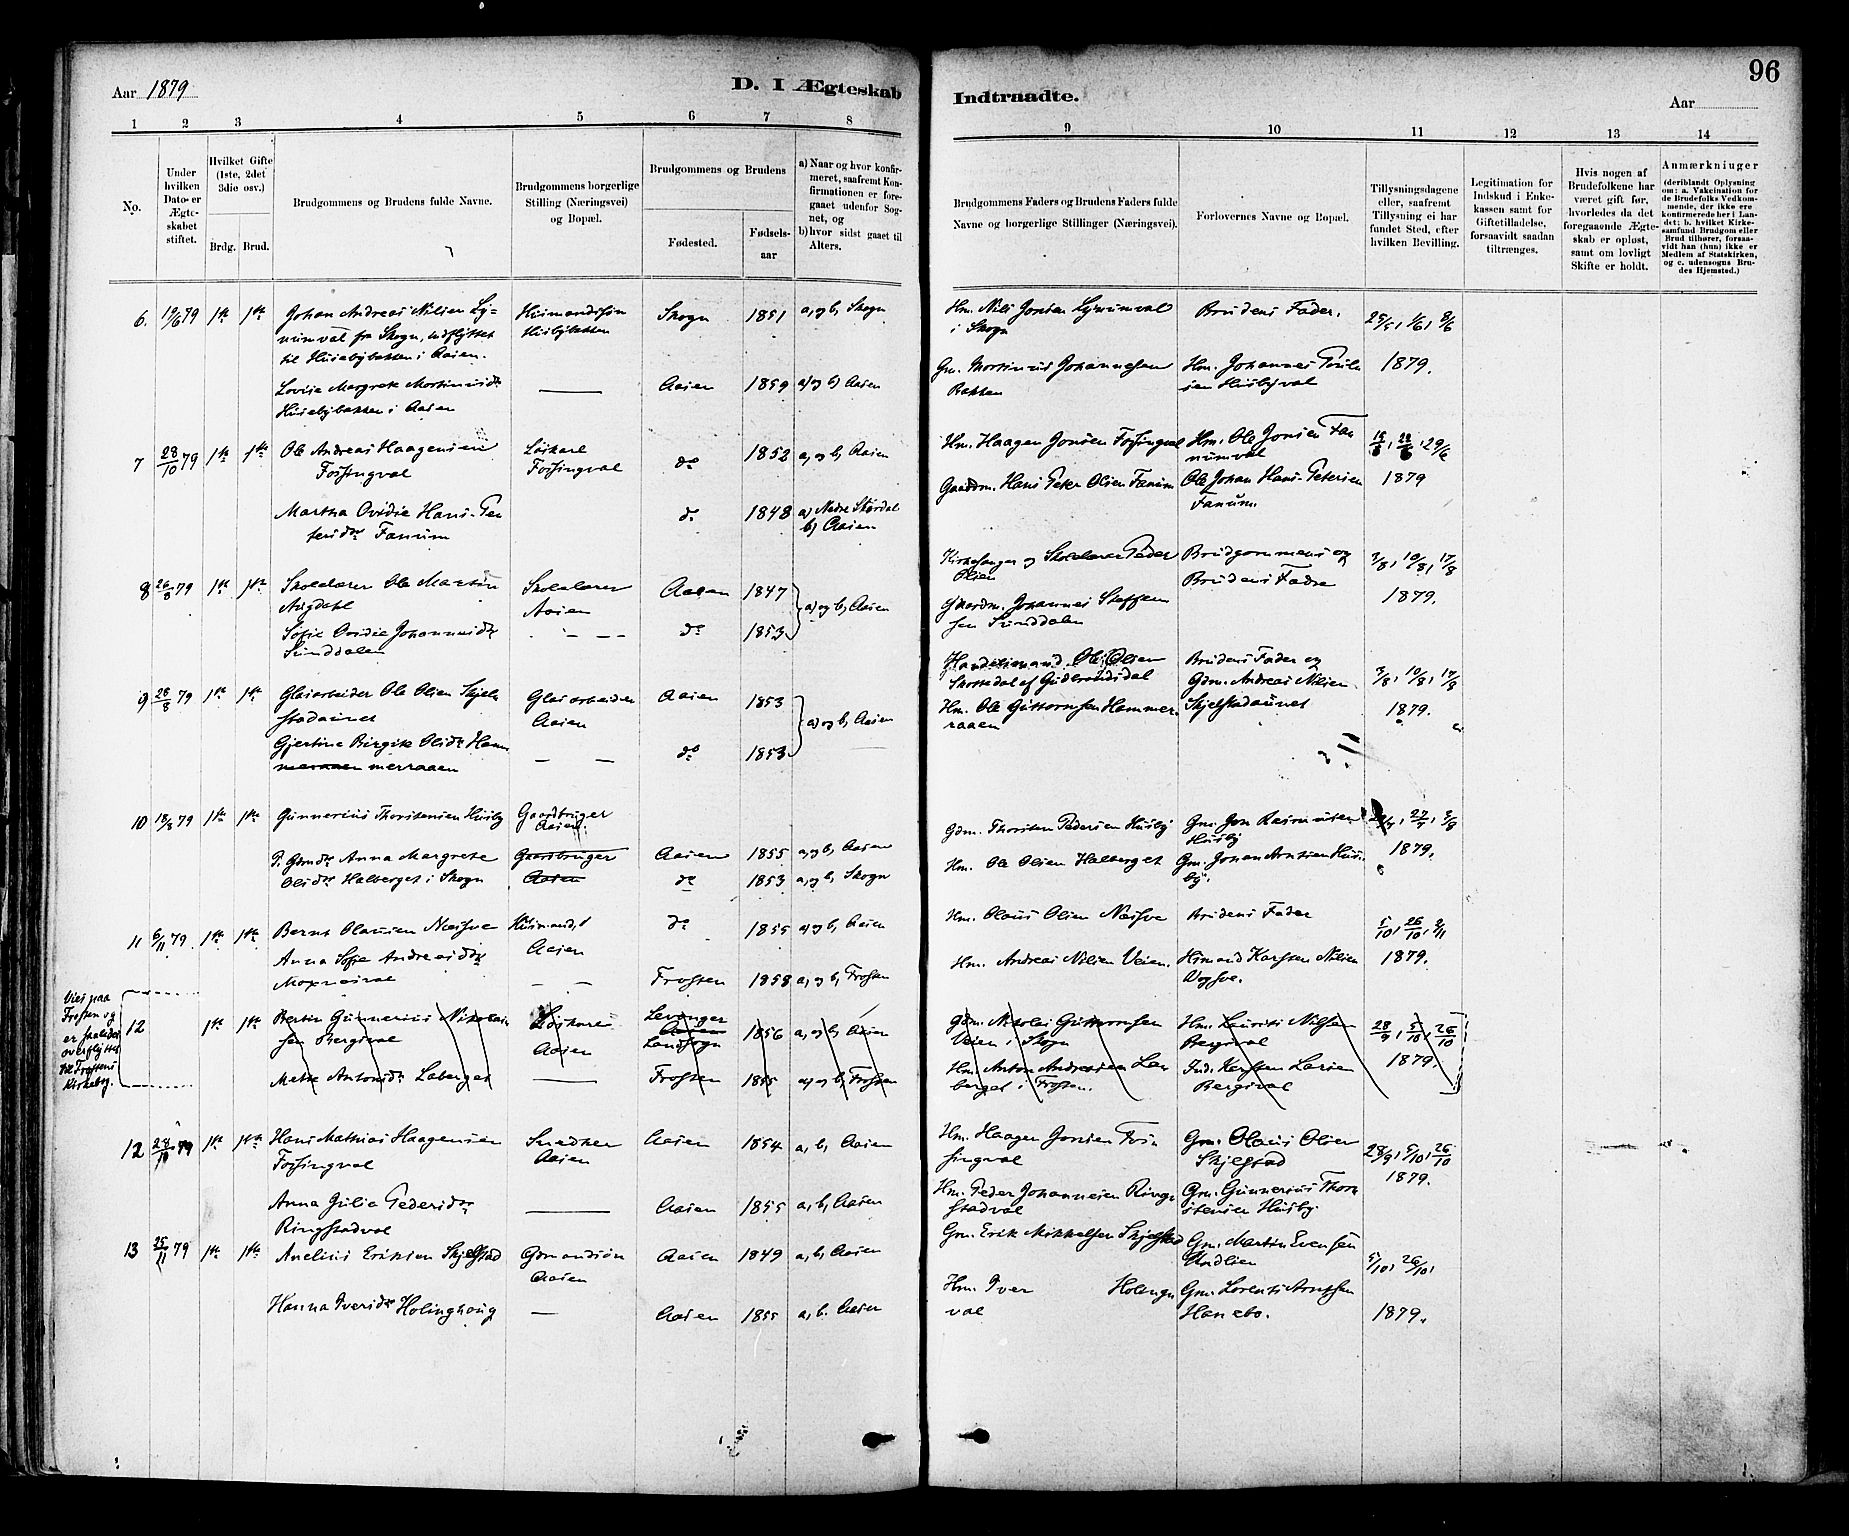 96
Aar 1879
D. I Ægteskab
Indtraadte.
Aar
1 2 3 4 5 6 7 8
9 10 11 12 13 14
No.
Under hvilken Dato er Ægteskabet stiftet.
Hvilket Gifte (1ste, 2det 3die osv.)
Brdg. Brud.
Brudgommens og Brudens fulde Navne.
Brudgommens borgerlige Stilling (Næringsvei) og Bopæl.
Brudgommens og Brudens
Fødested.
Fødsels-aar
a) Naar og hvor konfirmeret, saafremt Konfirmationen er foregaaet udenfor Sognet, og
b) hvor sidst gaaet til Alters.
Brudgommens Faders og Brudens Faders fulde Navne og borgerlige Stillinger (Næringsvei).
Forlovernes Navne og Bopæl.
Tillysningsdagene eller, saafremt Tillysning ei har fundet Sted, efter hvilken Bevilling.
Legitimation for Indskud i Enkekassen samt for Giftetilladelse, forsaavidt saadan tiltrænges.
Hvis nogen af Brudefolkene har været gift før, hvorledes da det foregaaende Ægteskab er opløst, samt om lovligt Skifte er holdt.
Anmærkninger
(deriblandt Oplysning om: a. Vakcination for de Brudefolks Vedkommende, der ikke ere konfirmerede her i Landet; b. hvilket Kirkesamfund Brudgom eller Brud tilhører, forsaavidt han (hun) ikke er Medlem af Statskirken, og c. udensogns Brudes Hjemsted.)
6. 19/6 79 1ste 1ste Johan Andreas Nilsen
fra Skogn, udflyttet
til Husebybakken i Aasen.
Husmandssøn
Husbybakken
Skogn 1851 a, og b, Skogn
i Skogn
Brudens Fader.
25/5, 1/6, 8/6
1879.
Lovise Margrete Martinusdr
Husebybakken i Aasen
Aasen 1859 a) og b) Aasen
Gm. Martinus Johannessen
Bakken
Hm. Johannes
Husbyval
7 28/10 79 1ste 1ste Ole Andreas Haagensen
Forsingval
Løskarl
Forsingval
do 1852 a, og b, Aasen
Hm. Haagen Jonsen Forsingval
Hm. Ole Jonsen Fanumval
29/6
1879
Martha Ovidie Hans-Petersdr Fanum
do 1848 a) Nedre Størdal
b) Aasen
Gaardm. Hans Peter Olsen Fanum
Ole Johan Hans-Petersen
Fanum.
8 26/8 79 1ste 1ste Skolelærer Ole Martin
Aagdahl
Skolelærer
Aasen
Aasen 1847
a) og b) Aasen
Kirkesanger og Skolelærer Peder
Olsen
Brudgommens og
Brudens Fædre
3/8, 10/8, 17/8
1879.
Sofie Ovidie Johannesdr
Sunddalen
do 1853
Gaardm. Johannes Steffensen Sunddalen
9 28/8 79 1ste 1ste Glasarbeider Ole Olsen Skjelstadaunet
Glasarbeider
Aasen
Aasen 1853
a) og b, Aasen
Handelsmand Ole Olsen
af Gudbrandsdal
Brudens Fader og
Gdm. Andreas Nilsen
Skjelstadaunet
3/8, 10/8, 17/8
1879.
Gjertine Birgite Olsdr Hammerraaen
do 1853
Hm. Ole Guttormsen Hammerraaen
10 18/8 79 1ste 1ste Gunnerius Thorstensen Husby
Gaardbruger
Aasen
Gdm. Thorsten Pedersen Husby
Gm. Jon Rasmussen
Husby
27/7, 3/8
1879.
P. Gdmdr Anna Margrete
Olsdr Halberget i Skogn
Gaardbruger
Aasen
Aasen 1855 a, og b, Aasen
do 1853 a, og b, Skogn
Hm. Ole Olsen Halberget
Gm. Johan Arntsen Husby.
11 6/11 79 1ste 1ste Bernt Olausen Næssve
Husmand,
Aasen
do 1855 a) og b, Aasen
Hm. Olaus Olsen Næssve
Brudens Fader
5/10, 26/10, 2/11
1879.
Anna Sofie Andreasdr
Moxnesval
Frosten 1858 a, og b, Frosten
Hm. Andreas Nilsen Veien.
Husmand Karsten Nilsen
Viet paa
Frosten og
er saaledes
overflyttet
til Frostens
Kirkebog.
12 1ste 1ste Bertin Gunnerius Nikolaisen Bergsval
Løskarl
Aasen
Levanger
Aasen
Landsogn
1856 a, og b, Aasen
Gdm. Nikolai Guttormsen
Veien i Skogn
Hm. Laurits Nilsen
Bergsval
28/9, 5/10, 26/10
1879.
Mette Antonsdr Laberget
Frosten 1855 a) og b, Frosten
Hm. Anton Andreasen Laberget i Frosten.
Ind. Karsten Larsen
Bergsval
12 28/10 79 1ste 1ste Hans Mathias Haagensen
Forsingval
Snedker
Aasen
Aasen 1854 a, b, Aasen
Hm. Haagen Jonsen Forsingval
Gm. Olaus Olsen
Skjelstad
28/9, 5/10, 26/10
1879.
Anna Julia Pedersdr
Ringstadval
Aasen 1855 a, b, Aasen
Hm. Peder Johannesen Ringstadval
Gm. Gunnerius Thorstensen Husby
13 25/11 79 1ste 1ste Anelius Eriksen Skjelstad
Gdmandssøn
Aasen
Aasen 1849 a, b, Aasen
Gm. Erik Mikkalsen Skjelstad
Gm. Martin Evensen
Undlien
5/10, 26/10,
1879.
Hanna Iversdr Holinghaug
Aasen 1855 a, b. Aasen
Hm. Iver Holingval
Gm. Lorents Arntsen
Hanebo.